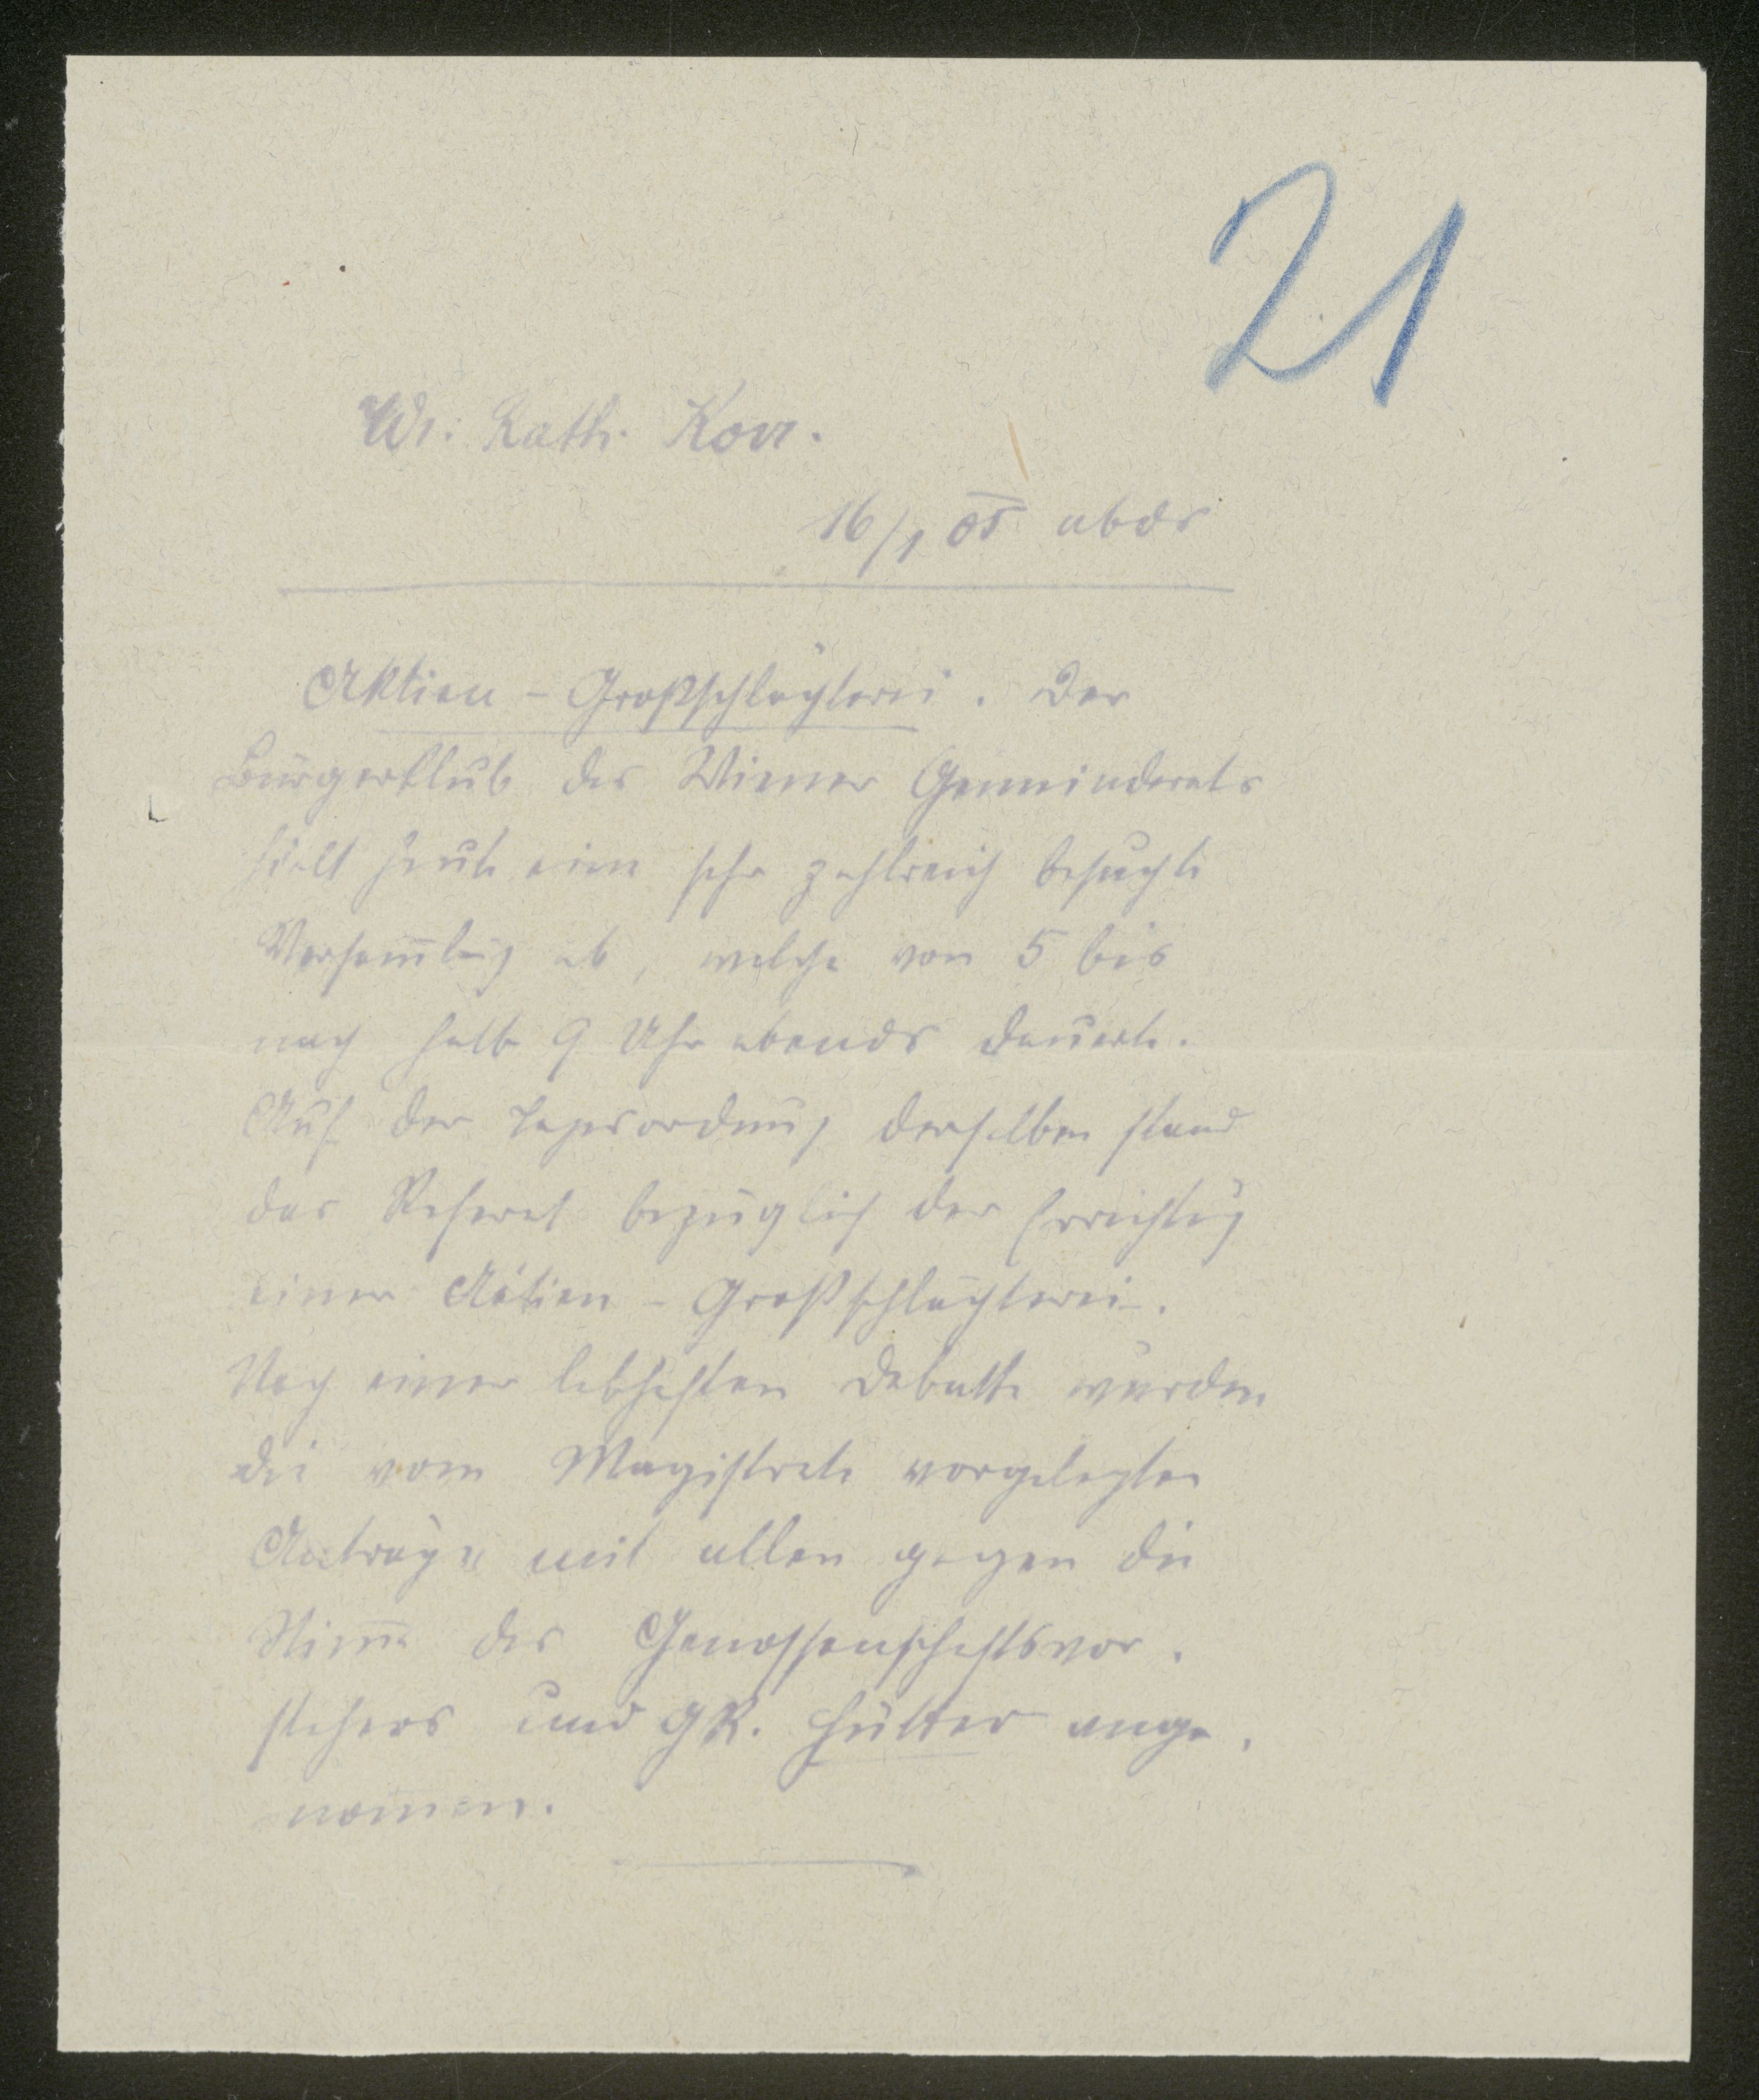 21
Wr. Rath. Korr.
16/1 05 abds
Aktien-Großschlächterei. Der
Bürgerklub des Wiener Gemeinderats
hielt heute eine sehr zahlreich besuchte
Versam̅lung ab, welche von 5 bis
nach halb 9 Uhr abends dauerte.
Auf der Tagesordnung derselben stand
das Referat bezüglich der Errichtung
einer Aktien-Großschlächterei.
Nach einer lebhaften Debatte wurden
die vom Magistrate vorgelegten
Anträge mit allen gegen die
Stim̅e des Genossenschaftsvor-
stehers und GR. Hütter ange-
nom̅en.